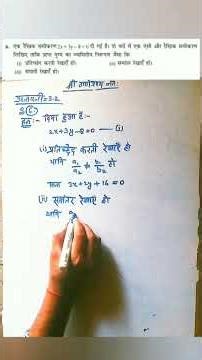 6. एक रैखिक समीकरण 2x + 3y - 8 = 0 दी गई है। दो चरों में एक ऐसी और रैखिक समीकरण
लिखिए ताकि प्राप्त युग्म का ज्यामितीय निरूपण जैसा कि
(i) प्रतिच्छेद करती रेखाएँ हों। (ii) समांतर रेखाएँ हों।
(iii) संपाती रेखाएँ हों।
श्री गणेशाय नमः
प्रश्नावली:- 3.2
हल:- दिया हुआ है:-
2x+3y-8=0 —(i)
(i) प्रतिच्छेद करती रेखाएँ हों
यानि a₁/a₂ ≠ b₁/b₂ हो
3x+2y+16=0
(ii) समांतर रेखाएँ हों
यानि